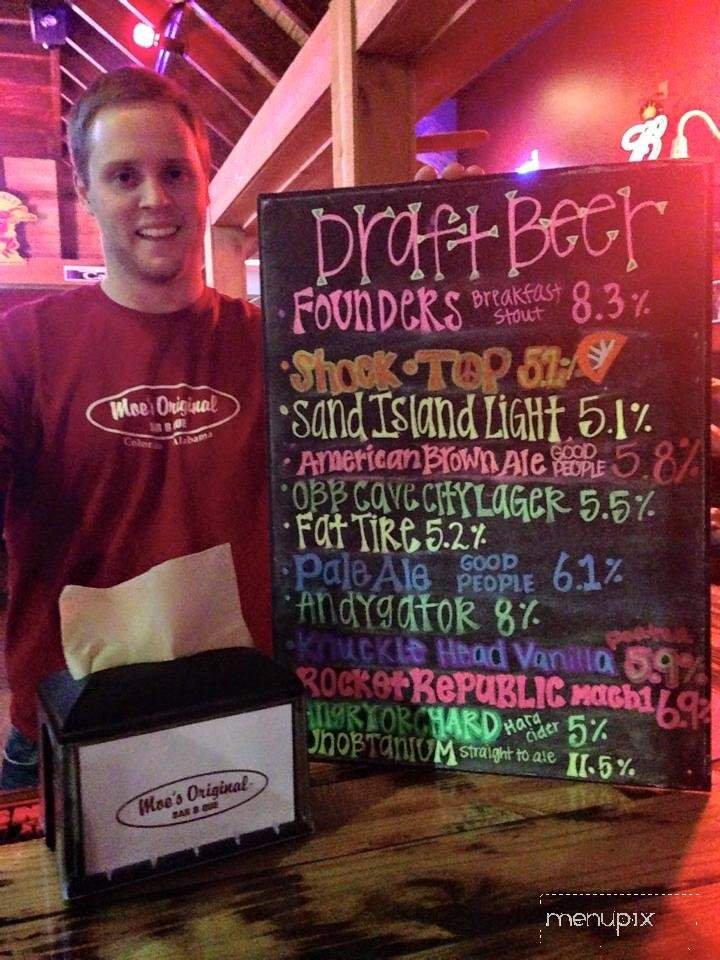 Draft Beer
FOUNDERS Breakfast Stout 8.3%
Shock • TOP 5.2%
• Sand Island Light 5.1%
• American Brown Ale GOOD PEOPLE 5.8%
• OBB CAVE CITY LAGER 5.5%
• Fat TIRE 5.2%
• Pale Ale GOOD PEOPLE 6.1%
• Andygator 8%
• Knuckle Head Vanilla 5.9%
ROCKET REPUBLIC Mach 1 6.9%
ANGRY ORCHARD Hard cider 5%
UNOBTANIUM Straight to ale 11.5%
Moe's Original
BAR B QUE
Colorado Alabama
Moe's Original
BAR B QUE
menupix